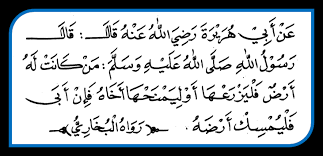 عَنْ أَبِي هُرَيْرَةَ رَضِيَ اللهُ عَنْهُ قَالَ : قَالَ
رَسُولُ اللهِ صَلَّى اللهُ عَلَيْهِ وَسَلَّمَ : مَنْ كَانَتْ لَهُ
أَرْضٌ فَلْيَزْرَعْهَا أَوْ لِيَمْنَحْهَا أَخَاهُ فَإِنْ أَبَى
فَلْيُمْسِكْ أَرْضَهُ . رَوَاهُ الْبُخَارِيُّ